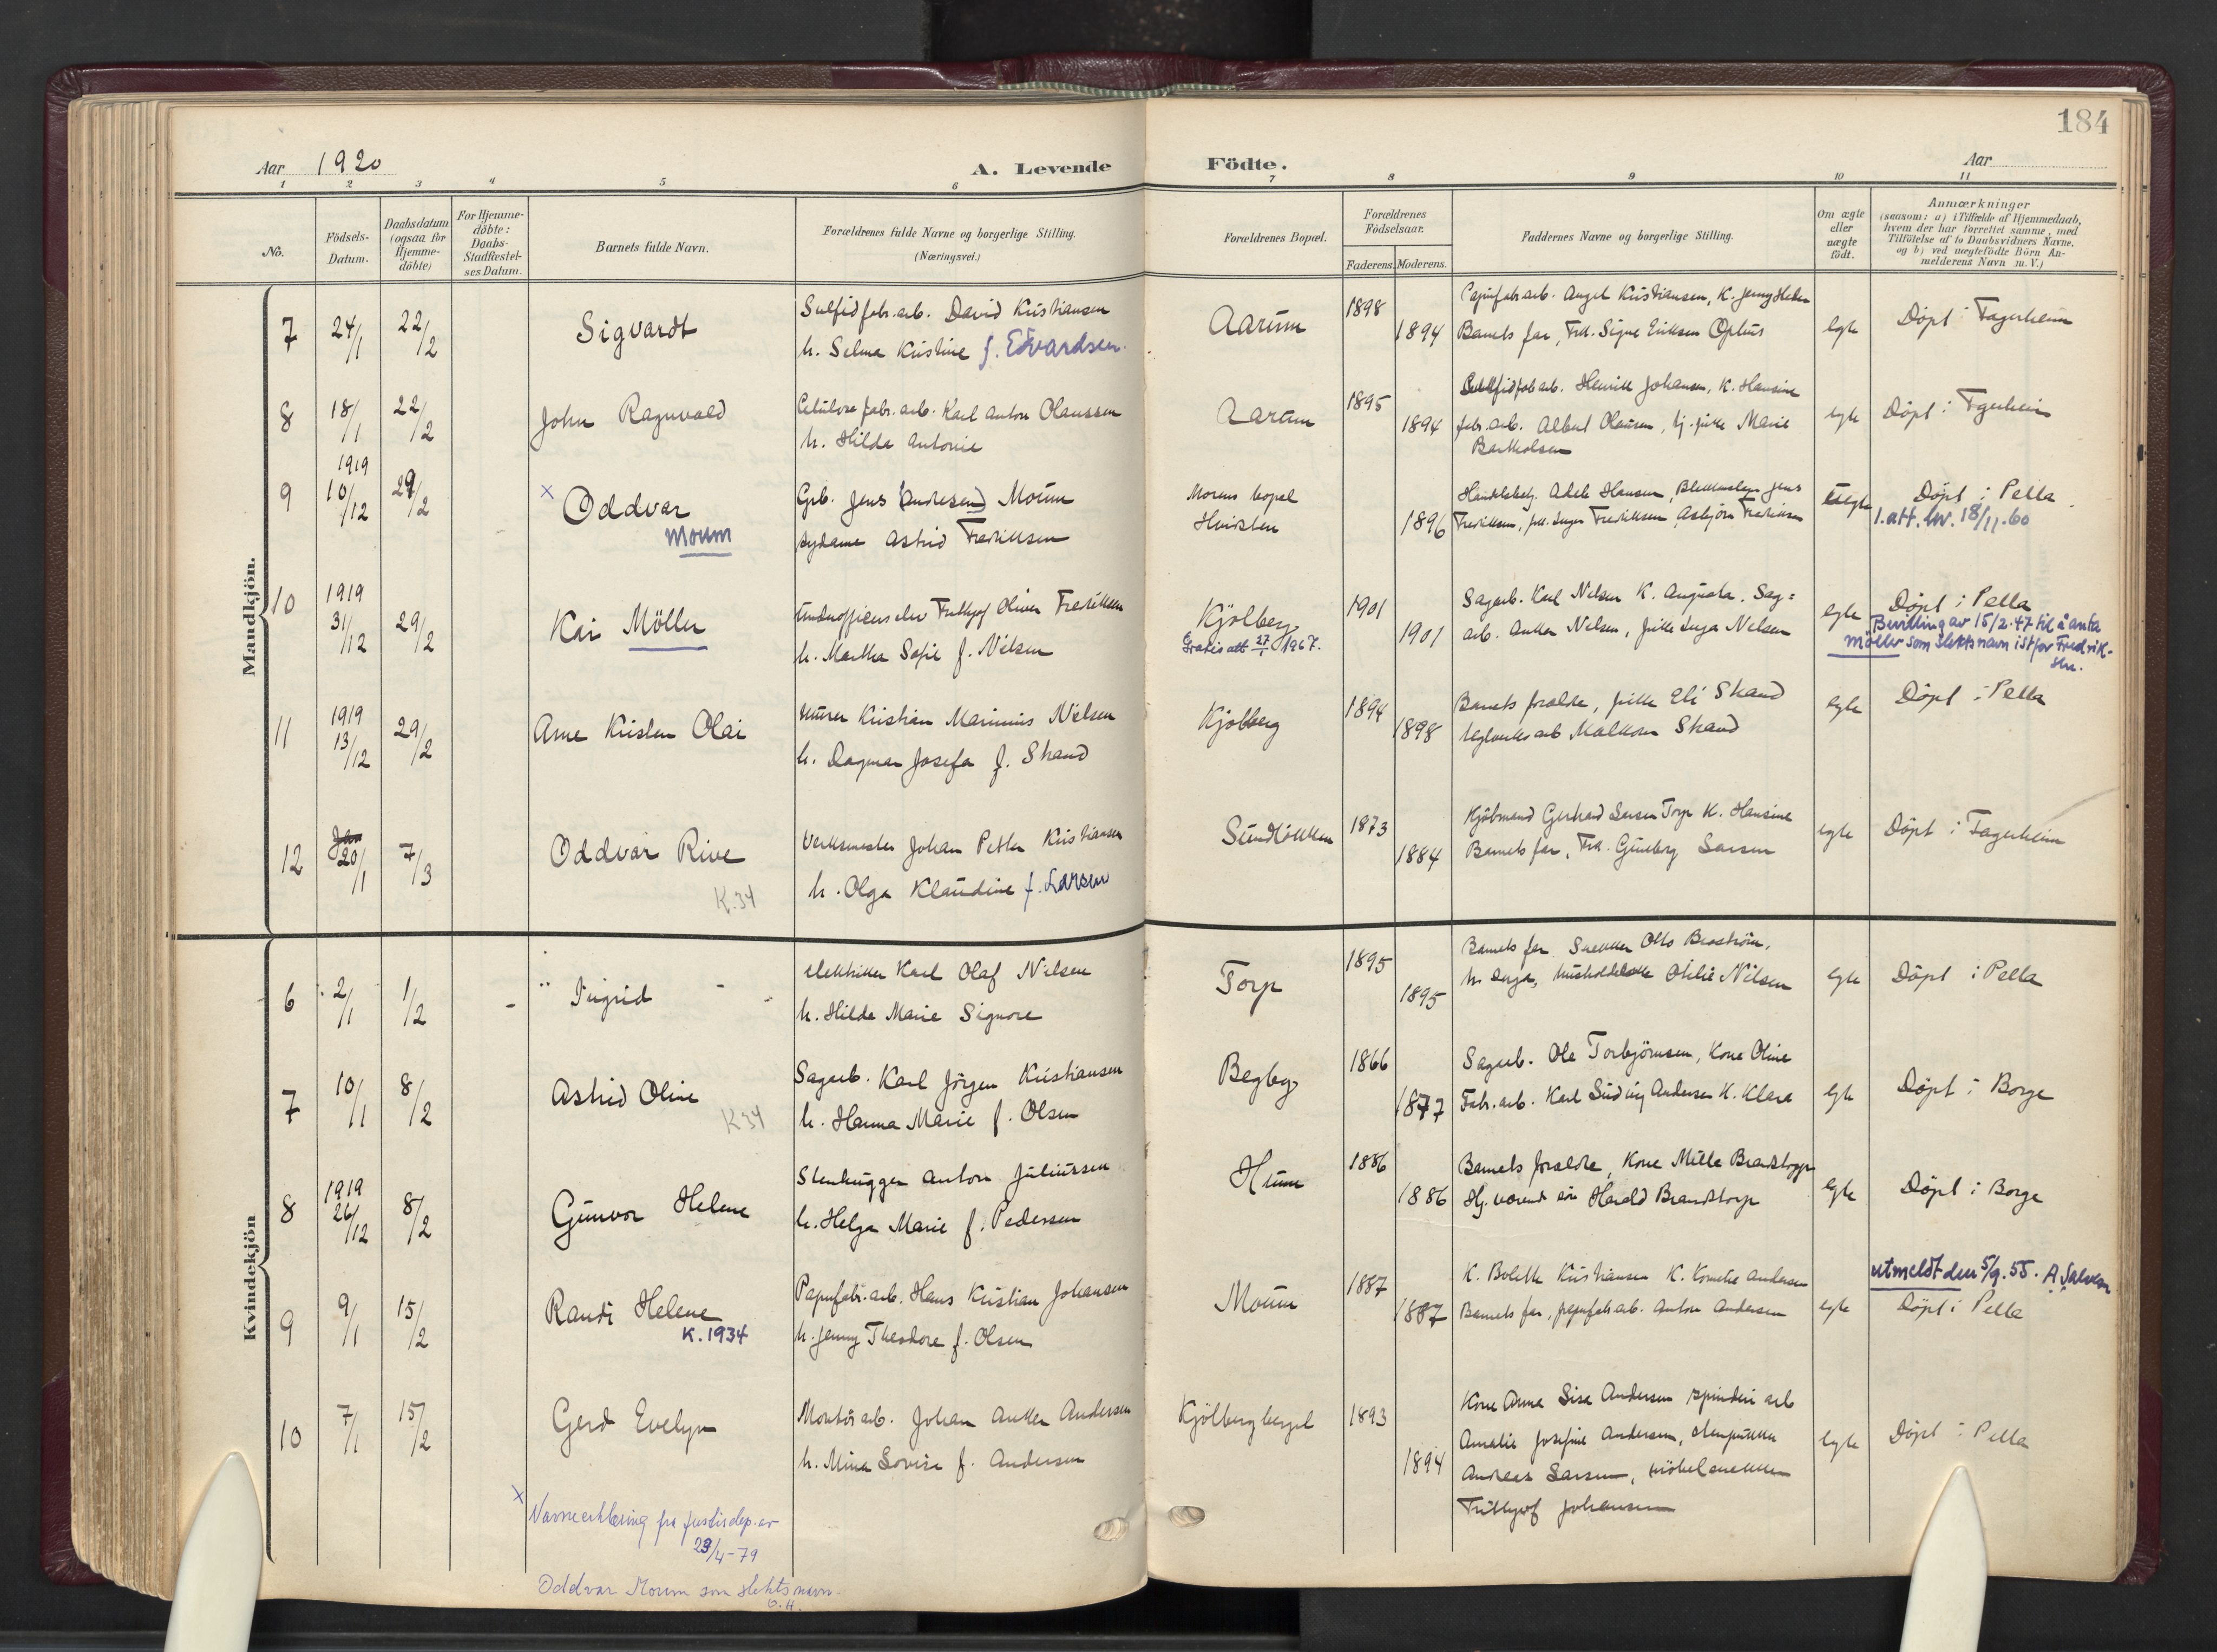 184
Aar 1920
A. Levende
Födte.
Aar
1 2 3 4 5 6 7 8 9 10 11
No.
Födsels-
Datum.
Daabsdatum
(ogsaa for
Hjemme-
döbte)
For Hjemme-
döbte:
Daabs-
Stadfæstel-
ses Datum.
Barnets fulde Navn.
Forældrenes fulde Navne og borgerlige Stilling.
(Næringsvei.)
Forældrenes Bopæl.
Forældrenes
Födselsaar.
Faderens. Moderens.
Faddernes Navne og borgerlige Stilling.
Om ægte
eller
uægte
födt.
Anmærkninger
(saasom: a) i Tilfælde af Hjemmedaab,
hvem der har forrettet samme, med
Tilföielse af to Daabsvidners Navne,
og b) ved uægtefödte Börn An-
melderens Navn m. V.)
Mandkjön.
7 24/1 22/2 Sigvardt
Sulfidfabr.arb. David Kristiansen
h. Selma Kristine f. Edvardsen.
Aarum 1898 1894
Papirfabr.arb. Angel Kristiansen, K. Jenny Helen
Barnets far, Frk. Signe Eriksen Ophus
egte Döpt i Fagerheim
8 18/1 22/2 John Ragnvald
Celulose fabr.arb. Karl Anton Olaussen
h. Hilda Antonie
Aarum 1895 1894
Sulfidfab arb. Henrik Johansen, K. Hansine
fabr.arb. Albert Olausen, tj.pike Marie
Bartholsen
egte Döpt i Fagerheim
9 1919 10/12 29/2 x Oddvar
Moum
Grb. Jens (Andresen) Moum
sydame Astrid Fredriksen
Morens bopæl
1896
Fredriksen, frk. Inga Fredriksen, Asbjörn Fredriksen
Uegte Döpt i Pella
1. att. hv. 18/11.60
10 1919 31/12 29/2 Kai Möller
Underofficerselev Fritjof Oliver Fredriksen
h. Martha Sofie f. Nilsen
Kjölberg
Gratis att 27/1 1967.
1901 1901
Sagarb. Karl Nilsen K. Augusta. Sag=
arb. Anker Nilsen, pike Inga Nelsen
egte Döpt i Pella
Bevilling av 15/2-47 til å anta
Möller som slektsnavn istfor Fredrik-
sen.
11 1919 13/12 29/2 Arne Kristen Olai
Murer Kristian Marinius Nielsen
h. Dagmar Josefa f. Strand
Kjölberg 1894 1898
Barnets forældre, pike Eli Strand
teglverks arb Malkom Strand
egte Döpt i Pella
12 Jan 20/1 7/3 Oddvar Rive
K.34
Verksmester Johan Petter Kristiansen
h. Olga Klaudine f. Larsen
Sundlökken 1873 1884
Kjöbmand Gerhard Larsen Torp K. Hansine
Barnets far, Frk. Gunborg Larsen
egte Döpt i Fagerheim
Kvindekjön
6 2/1 1/2 Ingrid
elektriker Karl Olaf Nilsen
h. Hilda Marie Signore
Torp 1895 1895
Barnets far Snekker Otto Broström,
h. Inga, Othilie Nilsen
egte Döpt i Pella
7 10/1 8/2 Astrid Oline
K34
Sagarb. Karl Jörgen Kristiansen
h. Hanna Marie f. Olsen
Begby 1866 1877
Sagarb. Ole Torbjörnsen, Kone Oline
Fabr.arb. Karl Ludvig Andersen K. Klara
egte Döpt i Borge
8 1919 26/12 8/2 Gunvor Helene
Stenhugger Anton Juliussen
h. Helga Marie f. Pedersen
Hunn 1886 1886
Barnets forældre, Kone Mille Brandstorp
Hj. værende sön Harald Brandstorp
egte Döpt i Borge
9 9/1 15/2 Randi Helene
K.1934
Papirfabr.arb. Hans Kristian Johansen
h. Jenny Theodore f. Olsen
Moum 1887 1887
K. Bolette Kristiansen K. Kornelie Andersen
Barnets far, papirfab arb. Anton Andersen
egte utmeldt den 5/9.55. A.
Döpt i Pella
10 7/1 15/2 Gerd Evelyn
Montör arb. Johan Anker Andersen
h. Mina Lovise f. Andersen
Kjölberg bergel 1893 1894
Kone Anna Lise Andersen spinderi arb
Amalie Josefine Andersen,
Andreas Larsen, möbelsnekker
Frithjof Johansen
egte Döpt i Pella
x
Navneerklæring fra Justisdep. av
23/4-79
Oddvar Moum som slektsnavn.
O.H.